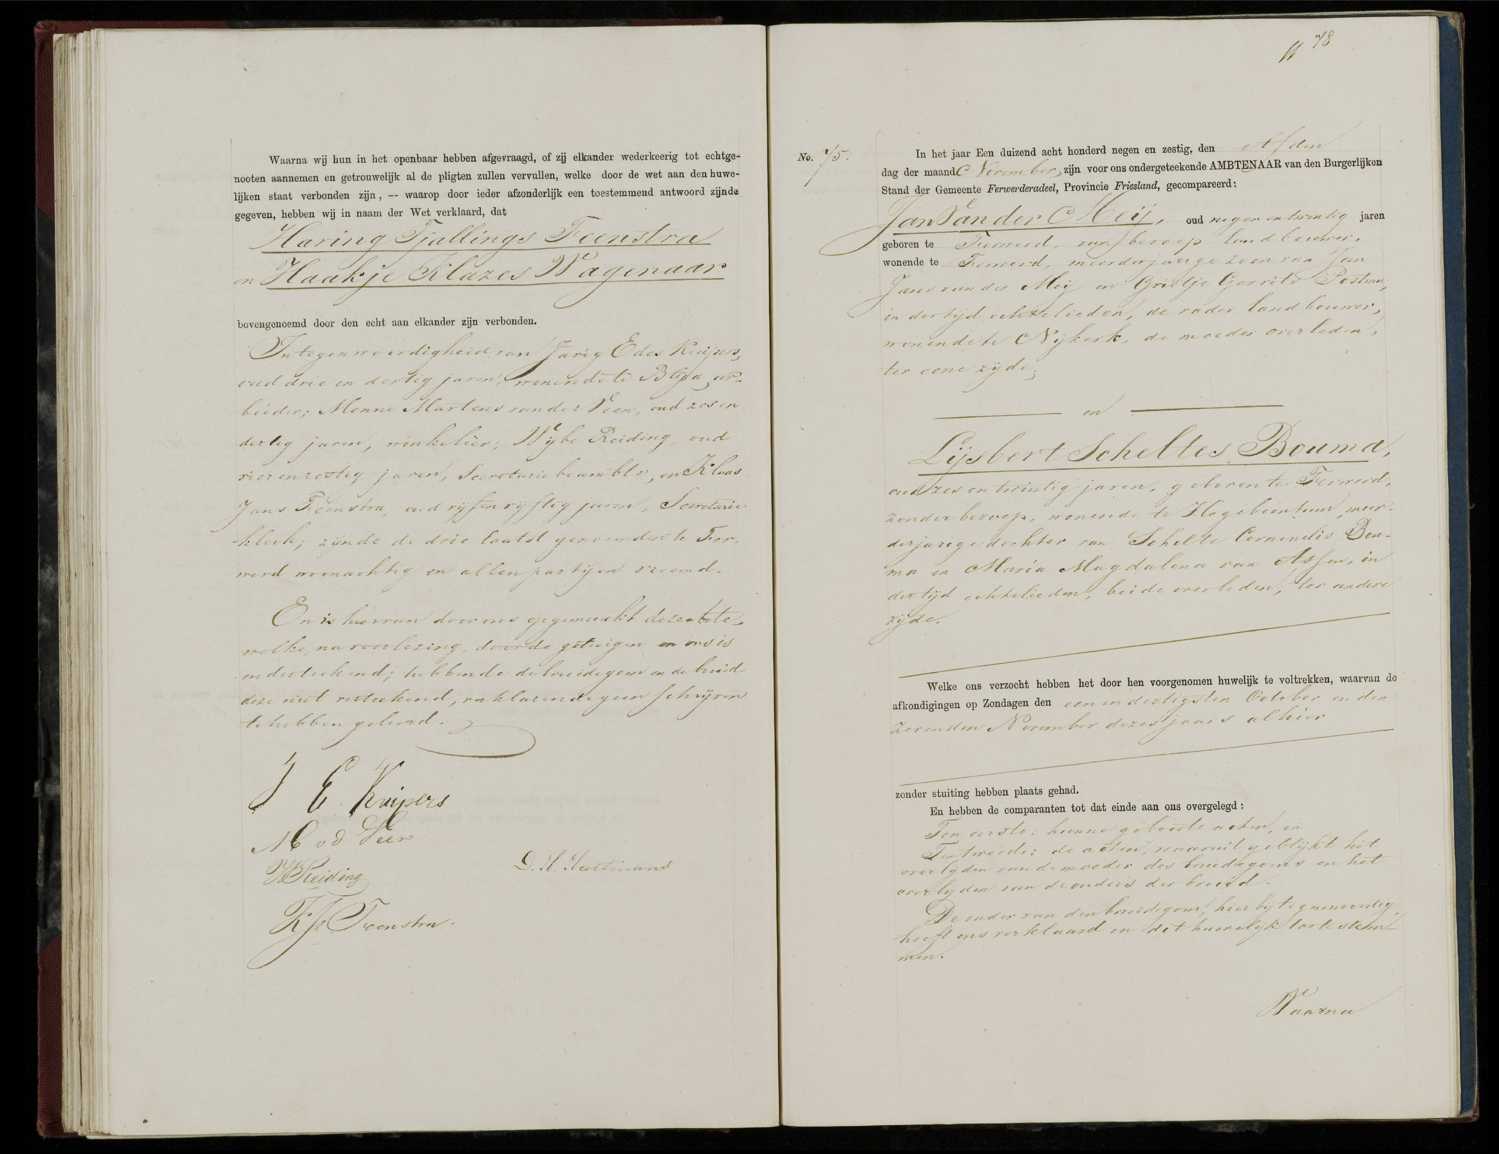 Waarna wij hun in het openbaar hebben afgevraagd, of zij elkander wederkeerig tot echtge-
nooten aannemen en getrouwelijk al de pligten zullen vervullen, welke door de wet aan den huwe-
lijken staat verbonden zijn, — waarop door ieder afzonderlijk een toestemmend antwoord zijnde
gegeven, hebben wij in naam der Wet verklaard, dat
Haring Tjallings Feenstra
en Haakje Klazes Wagenaar
bovengenoemd door den echt aan elkander zijn verbonden.
In tegenwoordigheid van Jarig Edes Kuipers,
oud drie en dertig jaren, wonende te Blija, ar-
beider; Menne Martens van der Veen, oud zes en
dertig jaren, winkelier; Wijbe Reiding, oud
vier en zestig jaren, Secretarie beambte, en Klaas
Jans Feenstra, oud vijf en vijftig jaren, Secretarie
klerk; zijnde de drie laatst genoemden te Fer-
werd woonachtig en allen partijen vreemd.
En is hiervan door ons opgemaakt deze akte,
welke, na voorlezing, door de getuigen en ons is
onderteekend; hebbende de bruidegom en de bruid
deze niet geteekend, verklarende geen schrijven
te hebben geleerd.
J E Kuipers
M v d Veen
W Reiding
K Js Feenstra.
11 78
No. 75.
In het jaar Een duizend acht honderd negen en zestig, den Elfden
dag der maand November, zijn voor ons ondergeteekende AMBTENAAR van den Burgerlijken
Stand der Gemeente Ferwerderadeel, Provincie Friesland, gecompareerd:
Jan Van der Meij, oud negen en twintig jaren
geboren te Ferwerd, van beroep landbouwer,
wonende te Ferwerd, meerderjarige zoon van Jan
Jans van der Meij en Grietje Gerrits Postma,
in der tijd echtelieden, de vader landbouwer,
wonende te Nijkerk, de moeder overleden,
ter eene zijde;
en
Lijsbert Scheltes Bouma,
oud zes en twintig jaren, geboren te Ferwerd,
zonder beroep, wonende te Hogebeintum, meer-
derjarige dochter van Schelte Cornendis Bou-
ma en Maria Magdalena van Assen, in
der tijd echtelieden, beide overleden, ter andere
zijde.
Welke ons verzocht hebben het door hen voorgenomen huwelijk te voltrekken, waarvan de
afkondigingen op Zondagen den een en dertigsten October en den
zevenden November dezes jaars alhier
zonder stuiting hebben plaats gehad.
En hebben de comparanten tot dat einde aan ons overgelegd:
Ten eerste: hunne geboorteacten, en
Ten tweede: de acten, waaruit geblijkt het
overlijden van de moeder des bruidegoms en het
overlijden van de ouders der bruid.
De vader van den bruidegom, hierbij tegenwoordig,
heeft ons verklaard in dit huwelijk toe te stem-
men.
Waarna